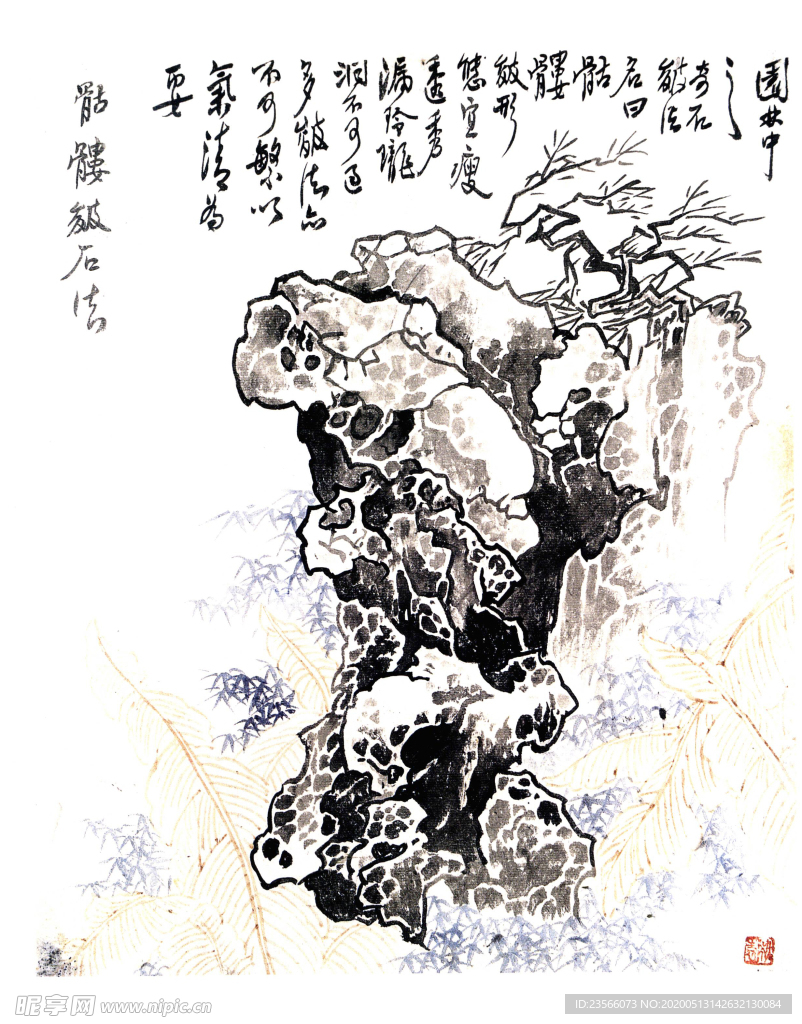 園林中
之
奇石
皴法
名曰
骷
髏
皴形
態宜瘦
透秀
漏玲瓏
洞不可过
多皴法亦
不可繁以
氣清為
要
骷髏皴石法
昵享网 www.nipic.cn
ID:23566073 NO:20200513142632130084